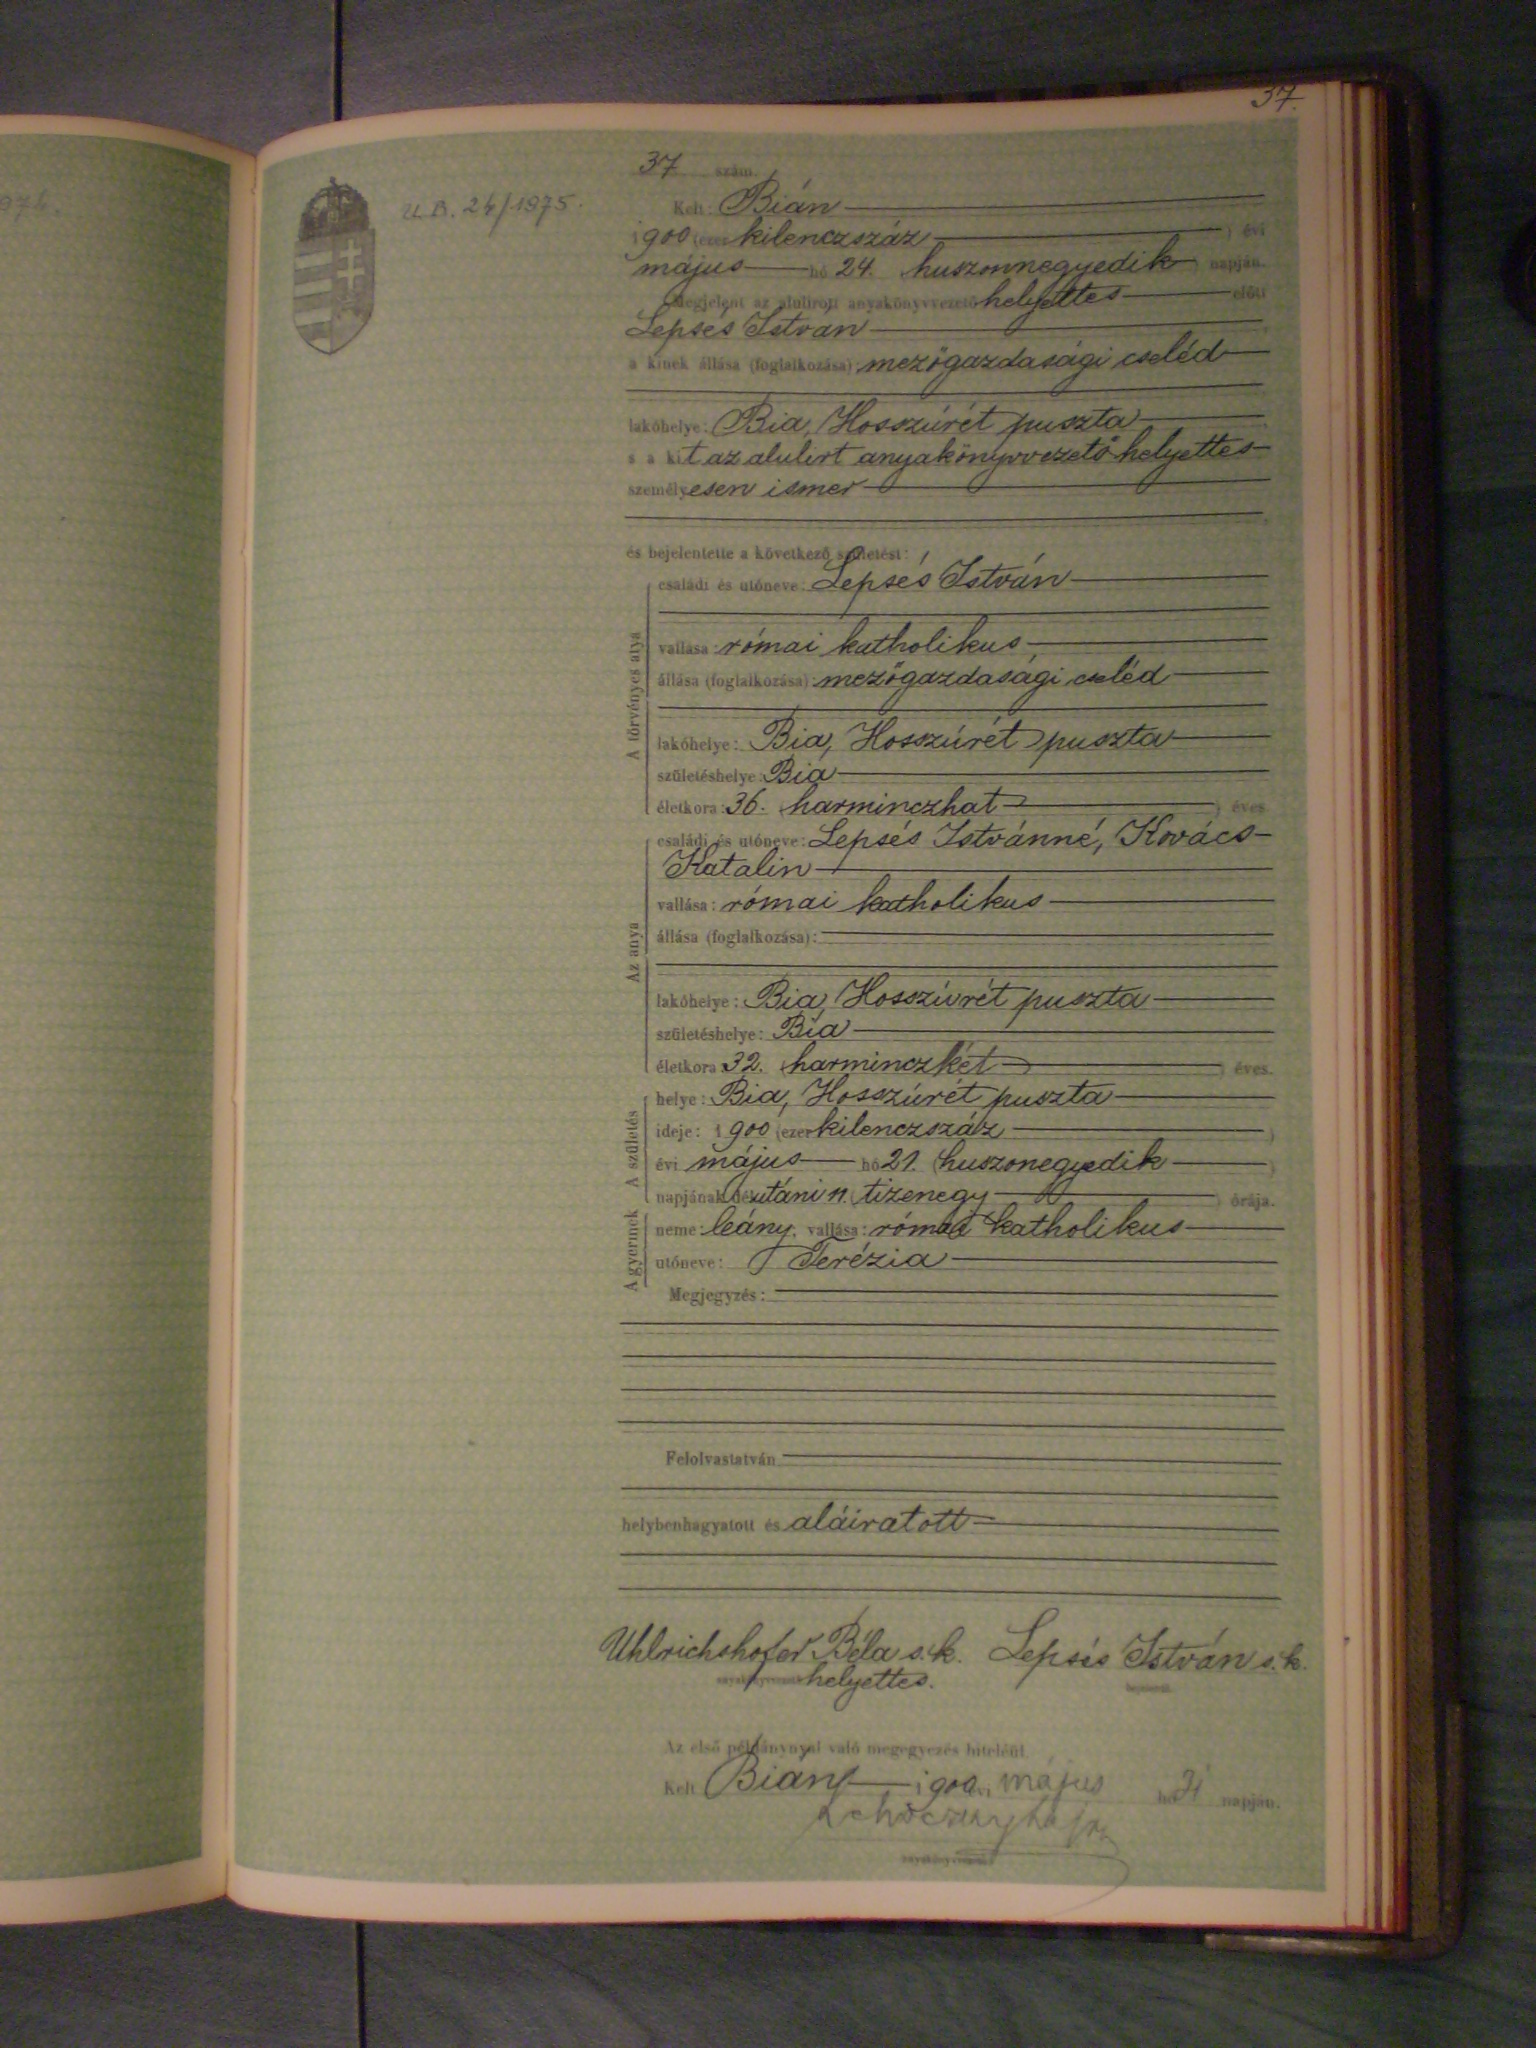 37.
976
U.B. 24/1975.
37 szám.
Kelt: Bián
1900 (ezer kilenczszáz) évi
május hó 24. (huszonnegyedik) napján.
Megjelent az alulirott anyakönyvvezető helyettes előtt
Lepsés István
a kinek állása (foglalkozása): mezőgazdasági cseléd
lakóhelye: Bia, Hosszúrét puszta
s a kit az alulirt anyakönyvvezető helyettes
személyesen ismer
és bejelentette a következő születést:
A törvényes atya
családi és utóneve: Lepsés István
vallása: római katholikus
állása (foglalkozása): mezőgazdasági cseléd
lakóhelye: Bia, Hosszúrét puszta
születéshelye: Bia
életkora: 36. (harminczhat) éves
Az anya
családi és utóneve: Lepsés Istvánné, Kovács
Katalin
vallása: római katholikus
állása (foglalkozása):
lakóhelye: Bia, Hosszúrét puszta
születéshelye: Bia
életkora: 32. (harminczkét) éves.
A születés
helye: Bia, Hosszúrét puszta
ideje: 1900 (ezer kilenczszáz)
évi május hó 21. (huszonegyedik)
napjának délutáni 11. (tizenegy) órája.
A gyermek
neme: leány; vallása: római katholikus
utóneve: Terézia
Megjegyzés:
Felolvastatván
helybenhagyatott és aláiratott
Uhlrichshofer Béla s.k. Lepsés István s.k.
helyettes.
Az első példánynyal való megegyezés hiteléül.
Kelt Bián 1900 évi május hó 31 napján.